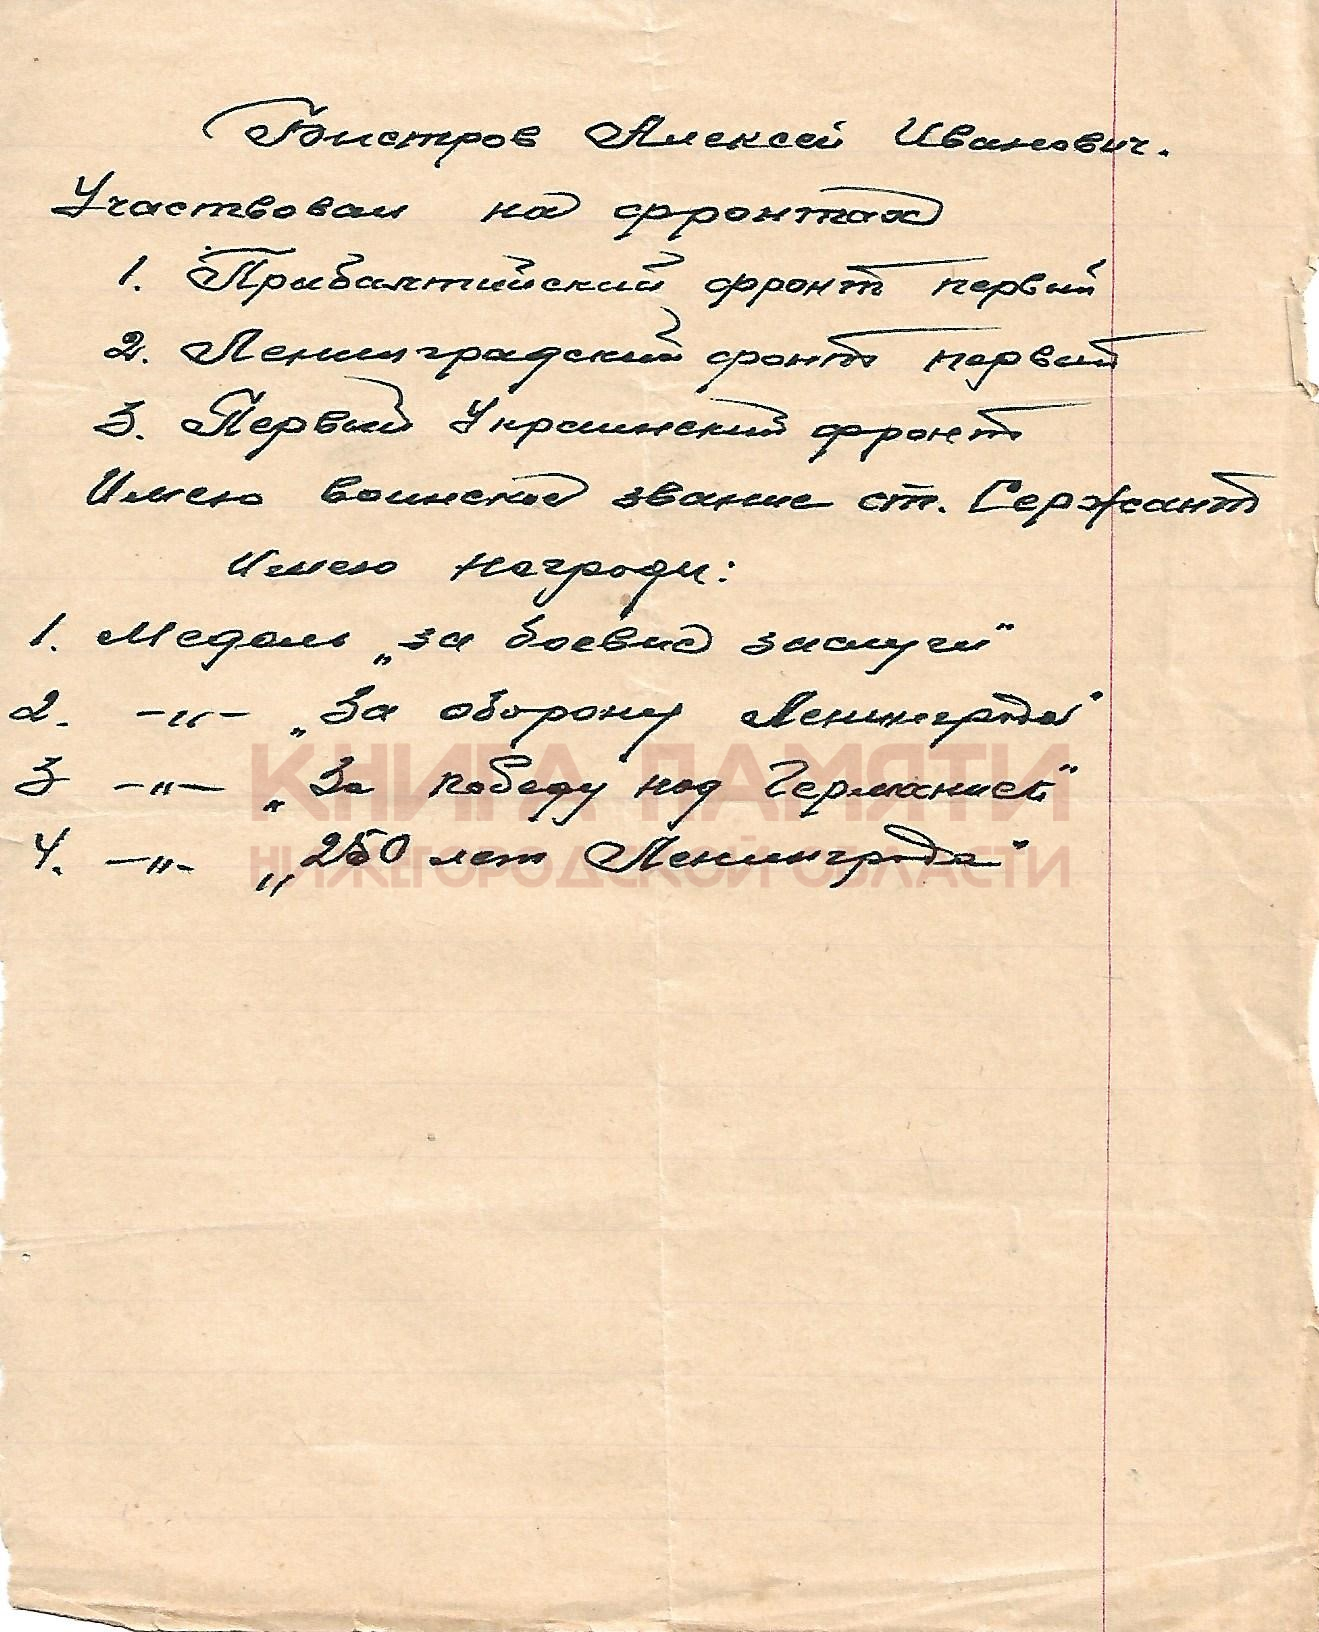 Быстров Алексей Иванович.
Участвовал на фронтах
1. Прибалтийский фронт первый
2. Ленинградский фронт первый
3. Первый Украинский фронт
Имею воинское звание ст. Сержант
Имею награды:
1. Медаль „за боевые заслуги"
2. —„— „За оборону Ленинграда"
3 —„— „За победу над Германией"
КНИГА ПАМЯТИ
4. —„— „250 лет Ленинграда"
НИЖЕГОРОДСКОЙ ОБЛАСТИ